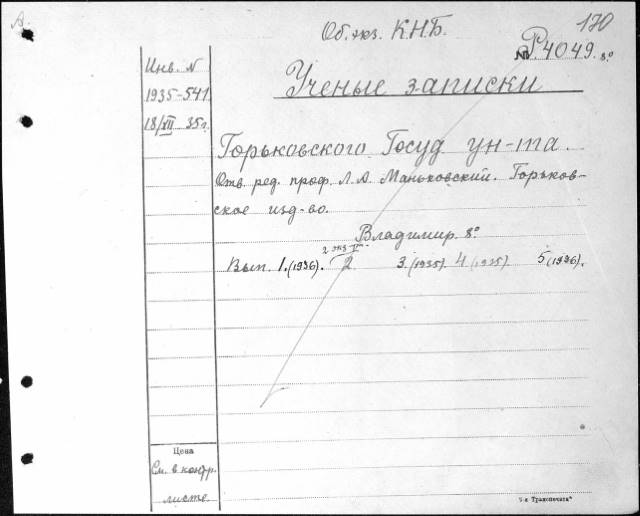 А.
Об. экз. КНБ.
170
№ Р.4049. 8.º
Инв. N
1935-541
18/XII 35 г.
Ученые записки
Горьковского Госуд ун-та.
Отв. ред. проф. Л.А. Маньковский. Горьков-
ское изд-во.
Владимир. 8º
2 экз
Вып. 1. (1936). 2 3. (1935). 4 (1935) 5 (1936).
Цена
См. в контр.
листе
"Транспечать"